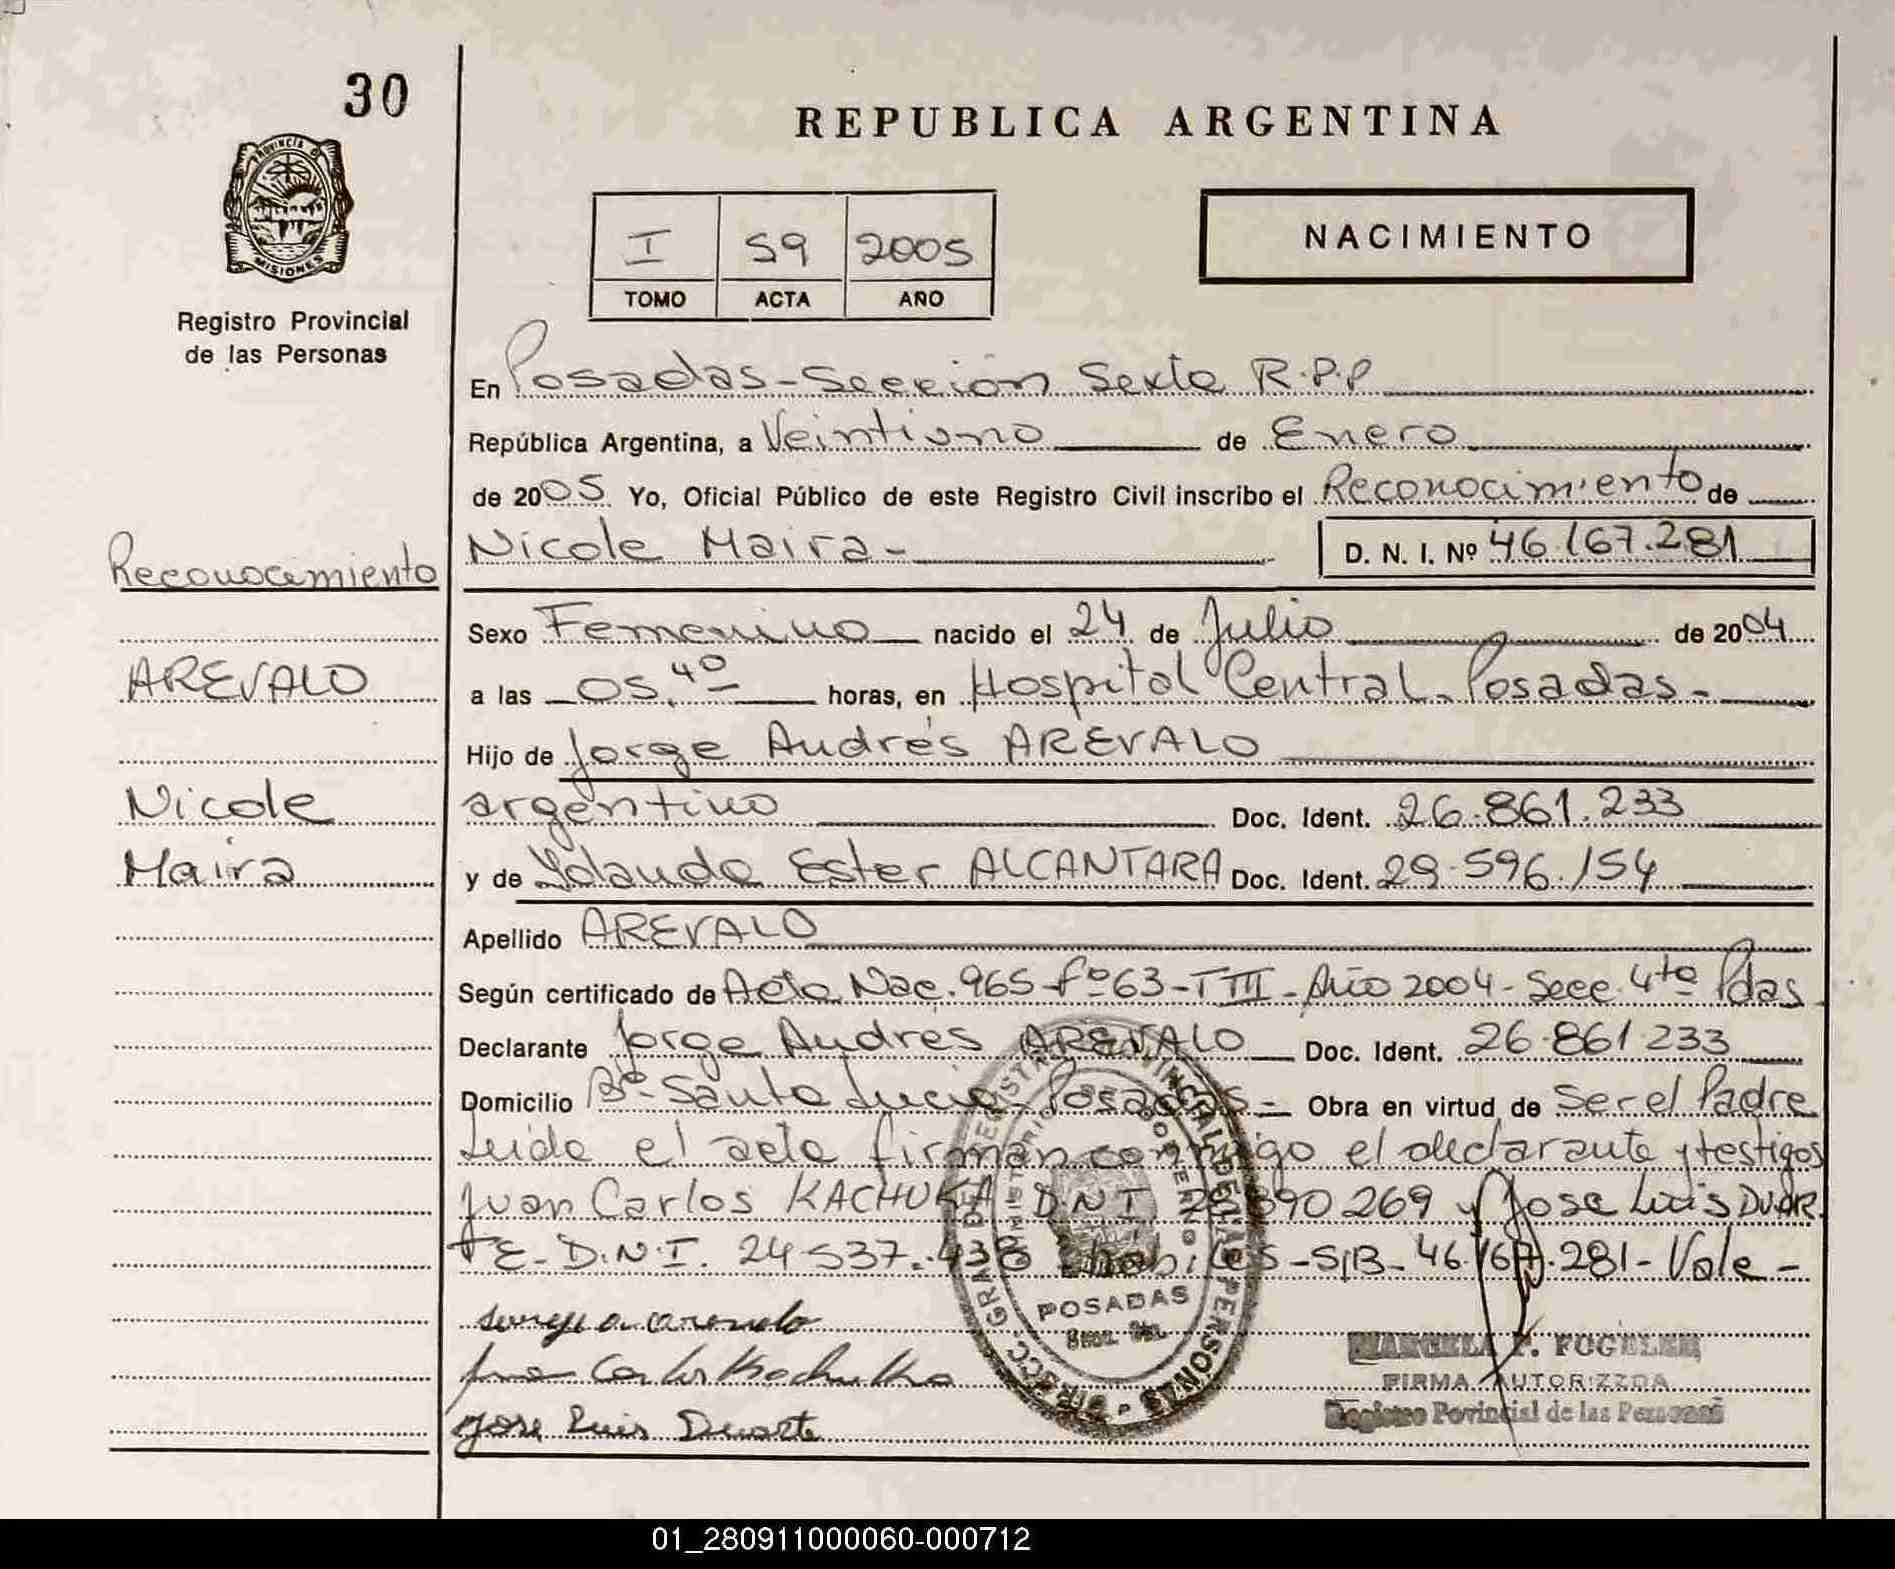 30
REPUBLICA ARGENTINA
PROVINCIA D
MISIONES
Registro Provincial
de las Personas
I 59 2005
TOMO ACTA AÑO
NACIMIENTO
En Posadas-Sección Sexta R.P.P
República Argentina, a Veintiuno de Enero
de 2005 Yo, Oficial Público de este Registro Civil inscribo el Reconocimiento de
Nicole Maira- D. N. I. Nº 46.167.281
Reconocimiento
Sexo Femenino nacido el 24 de Julio de 2004
AREVALO
a las 05.40 horas, en Hospital Central-Posadas-
Hijo de Jorge Andrés AREVALO
Nicole
argentino Doc. Ident. 26.861.233
Maira
y de Yolanda Ester ALCANTARA Doc. Ident. 29.596.154
Apellido AREVALO
Según certificado de Acta Nac. 965-Fº63-TIII-Año 2004-Secc. 4ta Pdas.
Declarante Jorge Andrés AREVALO Doc. Ident. 26.861.233
Domicilio Bº-Santa Lucia-Posadas- Obra en virtud de Ser el Padre
Leida el acta firman conmigo el declarante y testigos
Juan Carlos KACHUKA D.N.I. 390.269 y Jose Luis DUAR
TE-D.N.I. 24.537.438 habiles-S/B-46.167.281-Vale-
POSADAS
Juan Carlos Kachukha
Jose Luis Duarte
F. FUGELER
FIRMA AUTORIZZDA
Registro Povincial de las Personas
01_280911000060-000712